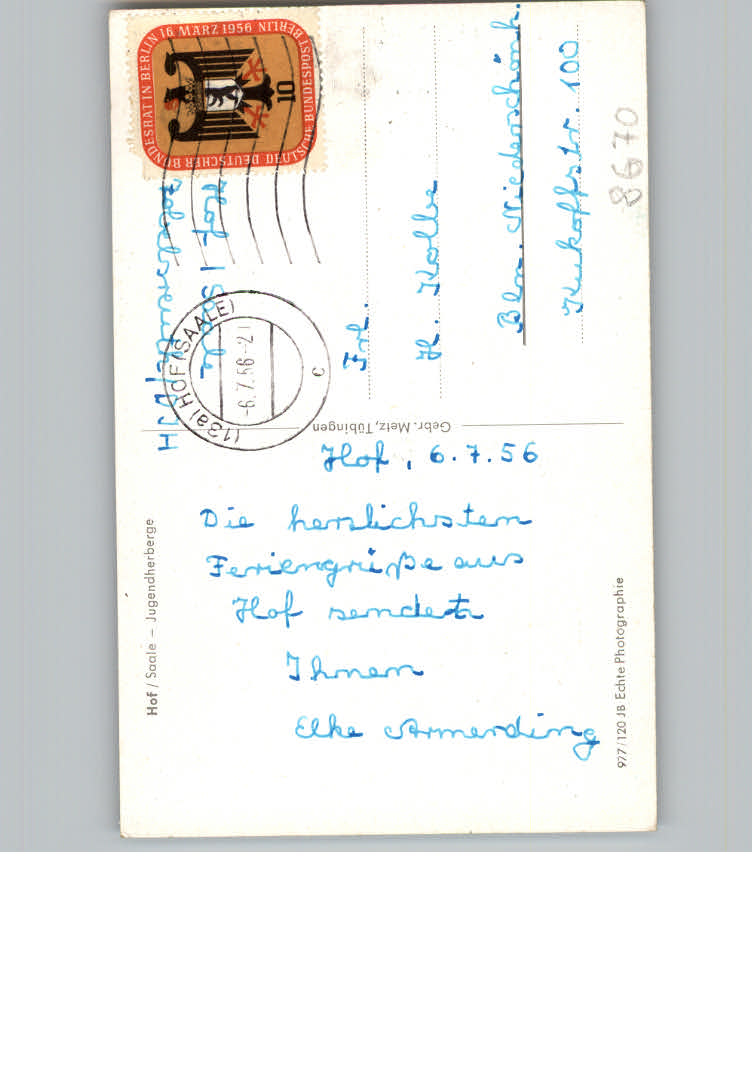 Hof, 6.7.56
Die herzlichsten
Feriengrüße aus
Hof sendet
Ihnen
Elke Armerding
Frl.
H. Kolbe
Bln. Niederschönh.
Kukoffstr. 100
8670
Hof / Saale
JH
DEUTSCHER BUNDESRAT IN BERLIN 16. MÄRZ 1956
DEUTSCHE BUNDESPOST BERLIN
10
(13a) HOF (SAALE)
-6.7.56-21
c
Gebr. Metz, Tübingen
Hof / Saale – Jugendherberge
977/120 JB Echte Photographie